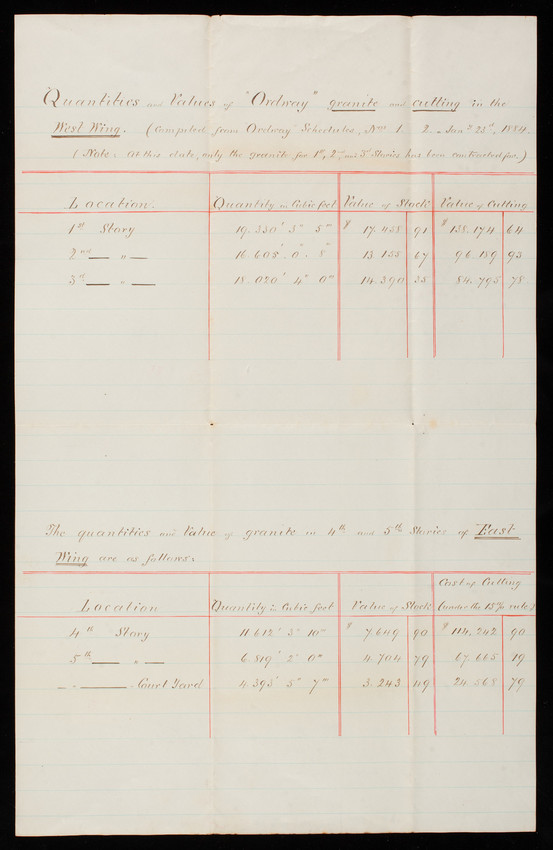 Quantities and Values of "Ordway" granite and cutting in the
West Wing. (Compiled from Ordway Schedules, Nos 1 2 - Jany 25th, 1884.
(Note: At this date, only the granite for 1st, 2nd and 3d Stories has been contracted for.)
Location. Quantity in Cubic feet Value of Stock Value of Cutting
1st Story 19.330' 3" 5''' $ 17.458 91 $ 138.174 64
2nd — " — 16.605' 0" 8''' 13.155 67 96.189 93
3d — " — 18.020' 4" 0''' 14.390 35 84.795 78
The quantities and Value of granite in 4th and 5th Stories of East
Wing are as follows:
Location Quantity in Cubic feet Value of Stock Cost of Cutting (under the 15% rule)
4th Story 11.612' 3" 10''' $ 7.649 90 $ 114.242 90
5th — " — 6.819' 2" 0''' 4.704 79 67.665 19
— " — Court Yard 4.395' 5" 7''' 3.243 49 24.568 79